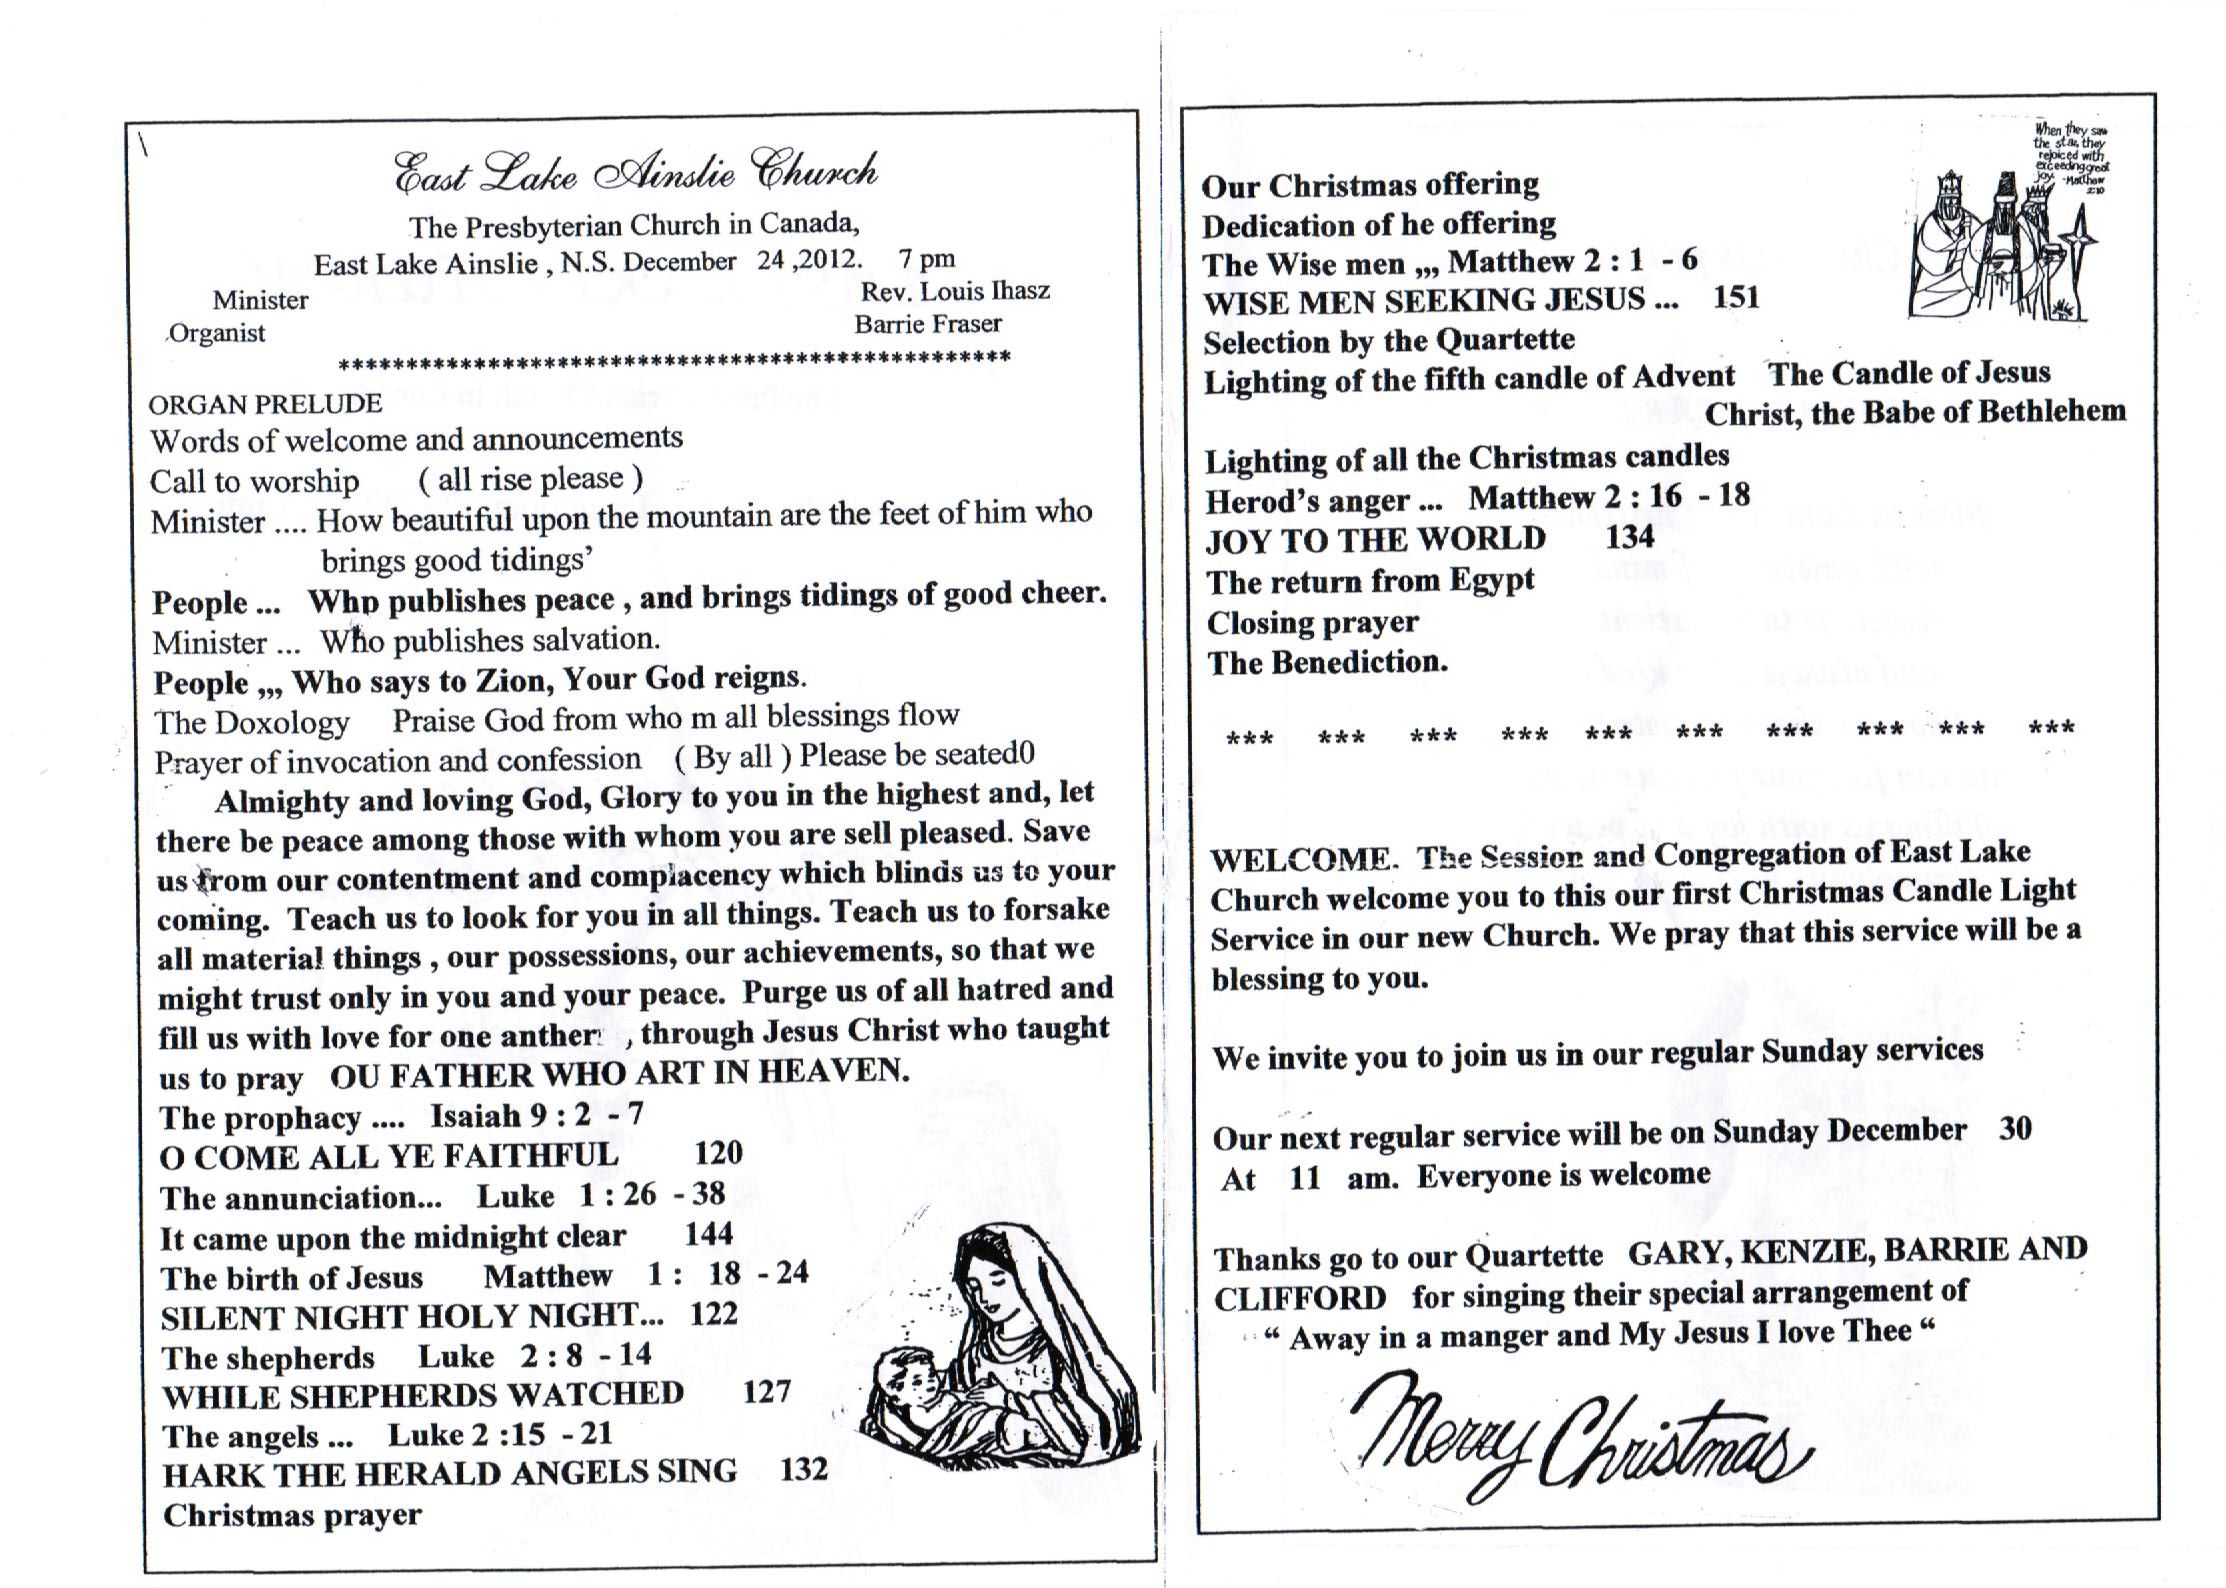 East Lake Ainslie Church
The Presbyterian Church in Canada,
East Lake Ainslie , N.S. December 24 ,2012. 7 pm
Minister Rev. Louis Ihasz
Organist Barrie Fraser
**************************************************
ORGAN PRELUDE
Words of welcome and announcements
Call to worship ( all rise please )
Minister .... How beautiful upon the mountain are the feet of him who
brings good tidings’
People ... Whp publishes peace , and brings tidings of good cheer.
Minister ... Who publishes salvation.
People ,,, Who says to Zion, Your God reigns.
The Doxology Praise God from who m all blessings flow
Prayer of invocation and confession ( By all ) Please be seated0
Almighty and loving God, Glory to you in the highest and, let
there be peace among those with whom you are sell pleased. Save
us from our contentment and complacency which blinds us to your
coming. Teach us to look for you in all things. Teach us to forsake
all material things , our possessions, our achievements, so that we
might trust only in you and your peace. Purge us of all hatred and
fill us with love for one anther , through Jesus Christ who taught
us to pray OU FATHER WHO ART IN HEAVEN.
The prophacy .... Isaiah 9 : 2 - 7
O COME ALL YE FAITHFUL 120
The annunciation... Luke 1 : 26 - 38
It came upon the midnight clear 144
The birth of Jesus Matthew 1 : 18 - 24
SILENT NIGHT HOLY NIGHT... 122
The shepherds Luke 2 : 8 - 14
WHILE SHEPHERDS WATCHED 127
The angels ... Luke 2 :15 - 21
HARK THE HERALD ANGELS SING 132
Christmas prayer
When they saw
the star, they
rejoiced with
exceeding great
joy. -Matthew
2:10
Our Christmas offering
Dedication of he offering
The Wise men ,,, Matthew 2 : 1 - 6
WISE MEN SEEKING JESUS ... 151
Selection by the Quartette
Lighting of the fifth candle of Advent The Candle of Jesus
Christ, the Babe of Bethlehem
Lighting of all the Christmas candles
Herod’s anger ... Matthew 2 : 16 - 18
JOY TO THE WORLD 134
The return from Egypt
Closing prayer
The Benediction.
*** *** *** *** *** *** *** *** *** ***
WELCOME. The Session and Congregation of East Lake
Church welcome you to this our first Christmas Candle Light
Service in our new Church. We pray that this service will be a
blessing to you.
We invite you to join us in our regular Sunday services
Our next regular service will be on Sunday December 30
At 11 am. Everyone is welcome
Thanks go to our Quartette GARY, KENZIE, BARRIE AND
CLIFFORD for singing their special arrangement of
“ Away in a manger and My Jesus I love Thee “
Merry Christmas